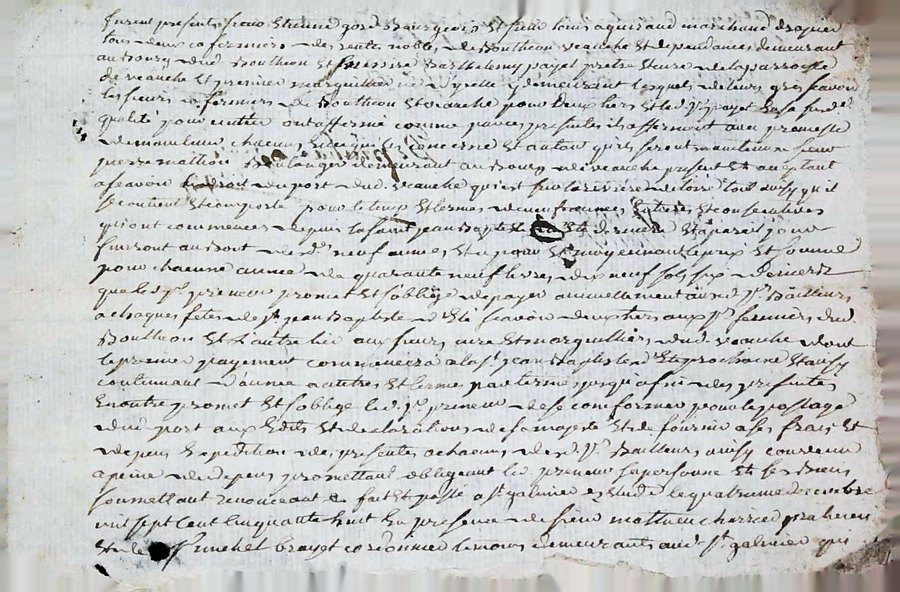 furent presents sieur Etienne gord Bourgeois et sieur louis marchand drapier
tous deux cofermiers des rente nobles de Bouthéon veauche et dependances demeurant
au Bourg dud Bouthéon et messire Barthelemy payet pretre et cure de la parroisse
de veauche et premier marguillier d'ycelle y demeurant lesquels de leurs gres scavoir
les sieurs fermiers de Bouthéon et veauche pour deux tiers et led sr payet en sad
qualité pour entier ont affermé comme par ces presentes ils afferment avec promesse
de maintenir chacuns en ce qui les concerne et autant qu'ils seront maintenus sieur
pierre mathon Boulanger demeurant au Bourg de veauche present et acceptant
a scavoir le droit de port dud veauche qui est sur la riviere de loire tout ainsy qu'il
se contient et comporte pour le temps et termes de neuf années entieres et consecutives
qui ont commencées depuis la saint jean Baptiste de et a pareil jour
finiront au Bout des dt neuf années et ce pour et moyennant le prix et somme
pour chacune année de quarante neuf livres dix neuf sols six deniers
que led sr preneur promet et s'oblige de payer annuellement auxd srs Bailleurs
a chaques fetes de st jean Baptiste d'Eté scavoir deux tiers aux srs fermiers dud
Bouthéon et l'autre tier aux sieurs cure et marguilliers dud veauche dont
le premier payement commencera a la st jean Baptiste d'Eté prochaine et ainsy
continuant d'année a autres et terme par terme jusqu'a fin des presentes
En outre promet et s'oblige led sr preneur de se conformer pour le passage
dud port aux Edits et declarations de sa majeste et de fournir a ses frais et
depens Expedition des presentes a chacuns desd srs Bailleurs ainsy convenu
a peine de depens promettant obligeant led preneur sa personne et ses Biens
soumettant renonceant &c fait et passé a st galmier es etude le quatrieme decembre
mil sept cent cinquante huit En presence de sieur mathieu praticien
et de sr michel brayet cordonnier temoins demeurants aud st galmier qui